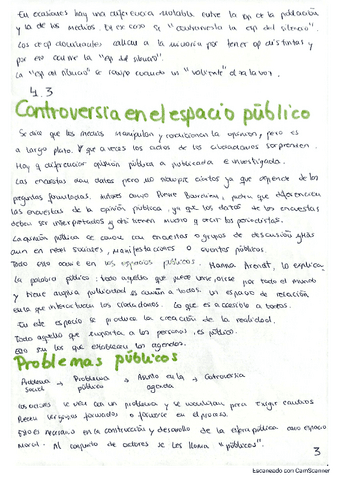 En ocasiones hay una diferencia notable entre la op de la población
y la de los medios. En ese caso se "contrarresta la esp del silencio"
Los op dominantes callan a la minoría por tener op distintas y
por eso ocurre la "esp del silencio".
La "esp del silencio" se rompe cuando un "valiente" alza la voz.
4.3
Controversia en el espacio público
Se dice que los medios manipulan y condicionan la opinión, pero es
a largo plazo. Y que a veces los votos de los ciudadanos sorprenden.
Hay q diferenciar opinión pública a publicada e investigada.
Las encuestas dan datos pero no siempre ciertos ya que depende de las
preguntas formuladas. Autores como Pierre Bourdieu, que diferencian
las encuestas de la opinión pública, ya que los datos de las encuestas
deben ser interpretados y ahí tienen mucho q decir los periodistas.
La opinión pública se conoce con encuestas o grupos de discusión
aun en redes sociales, manifestaciones o eventos públicos.
Todo esto ocurre en los espacios públicos. Hanna Arendt, lo explica:
la palabra público: todo aquello que puede verse, oirse por todo el mundo
y tiene amplia publicidad es común a todos. un espacio de relación,
en la que interactúan los ciudadanos. Lo que es accesible a todos.
En este espacio se produce la creación de la realidad.
Todo aquello que importa a las personas, es público.
son los que establecen las agendas.
Problemas públicos
Problema social → Problema público → Asunto en la agenda → Controversia
se ven con un problema y se movilizan para exigir cambios
formados o formarse en el proceso.
Esto es necesario en la construcción y desarrollo de la esfera pública como espacio
moral. Al conjunto de actores se les llama "públicos".
3
Escaneado con CamScanner